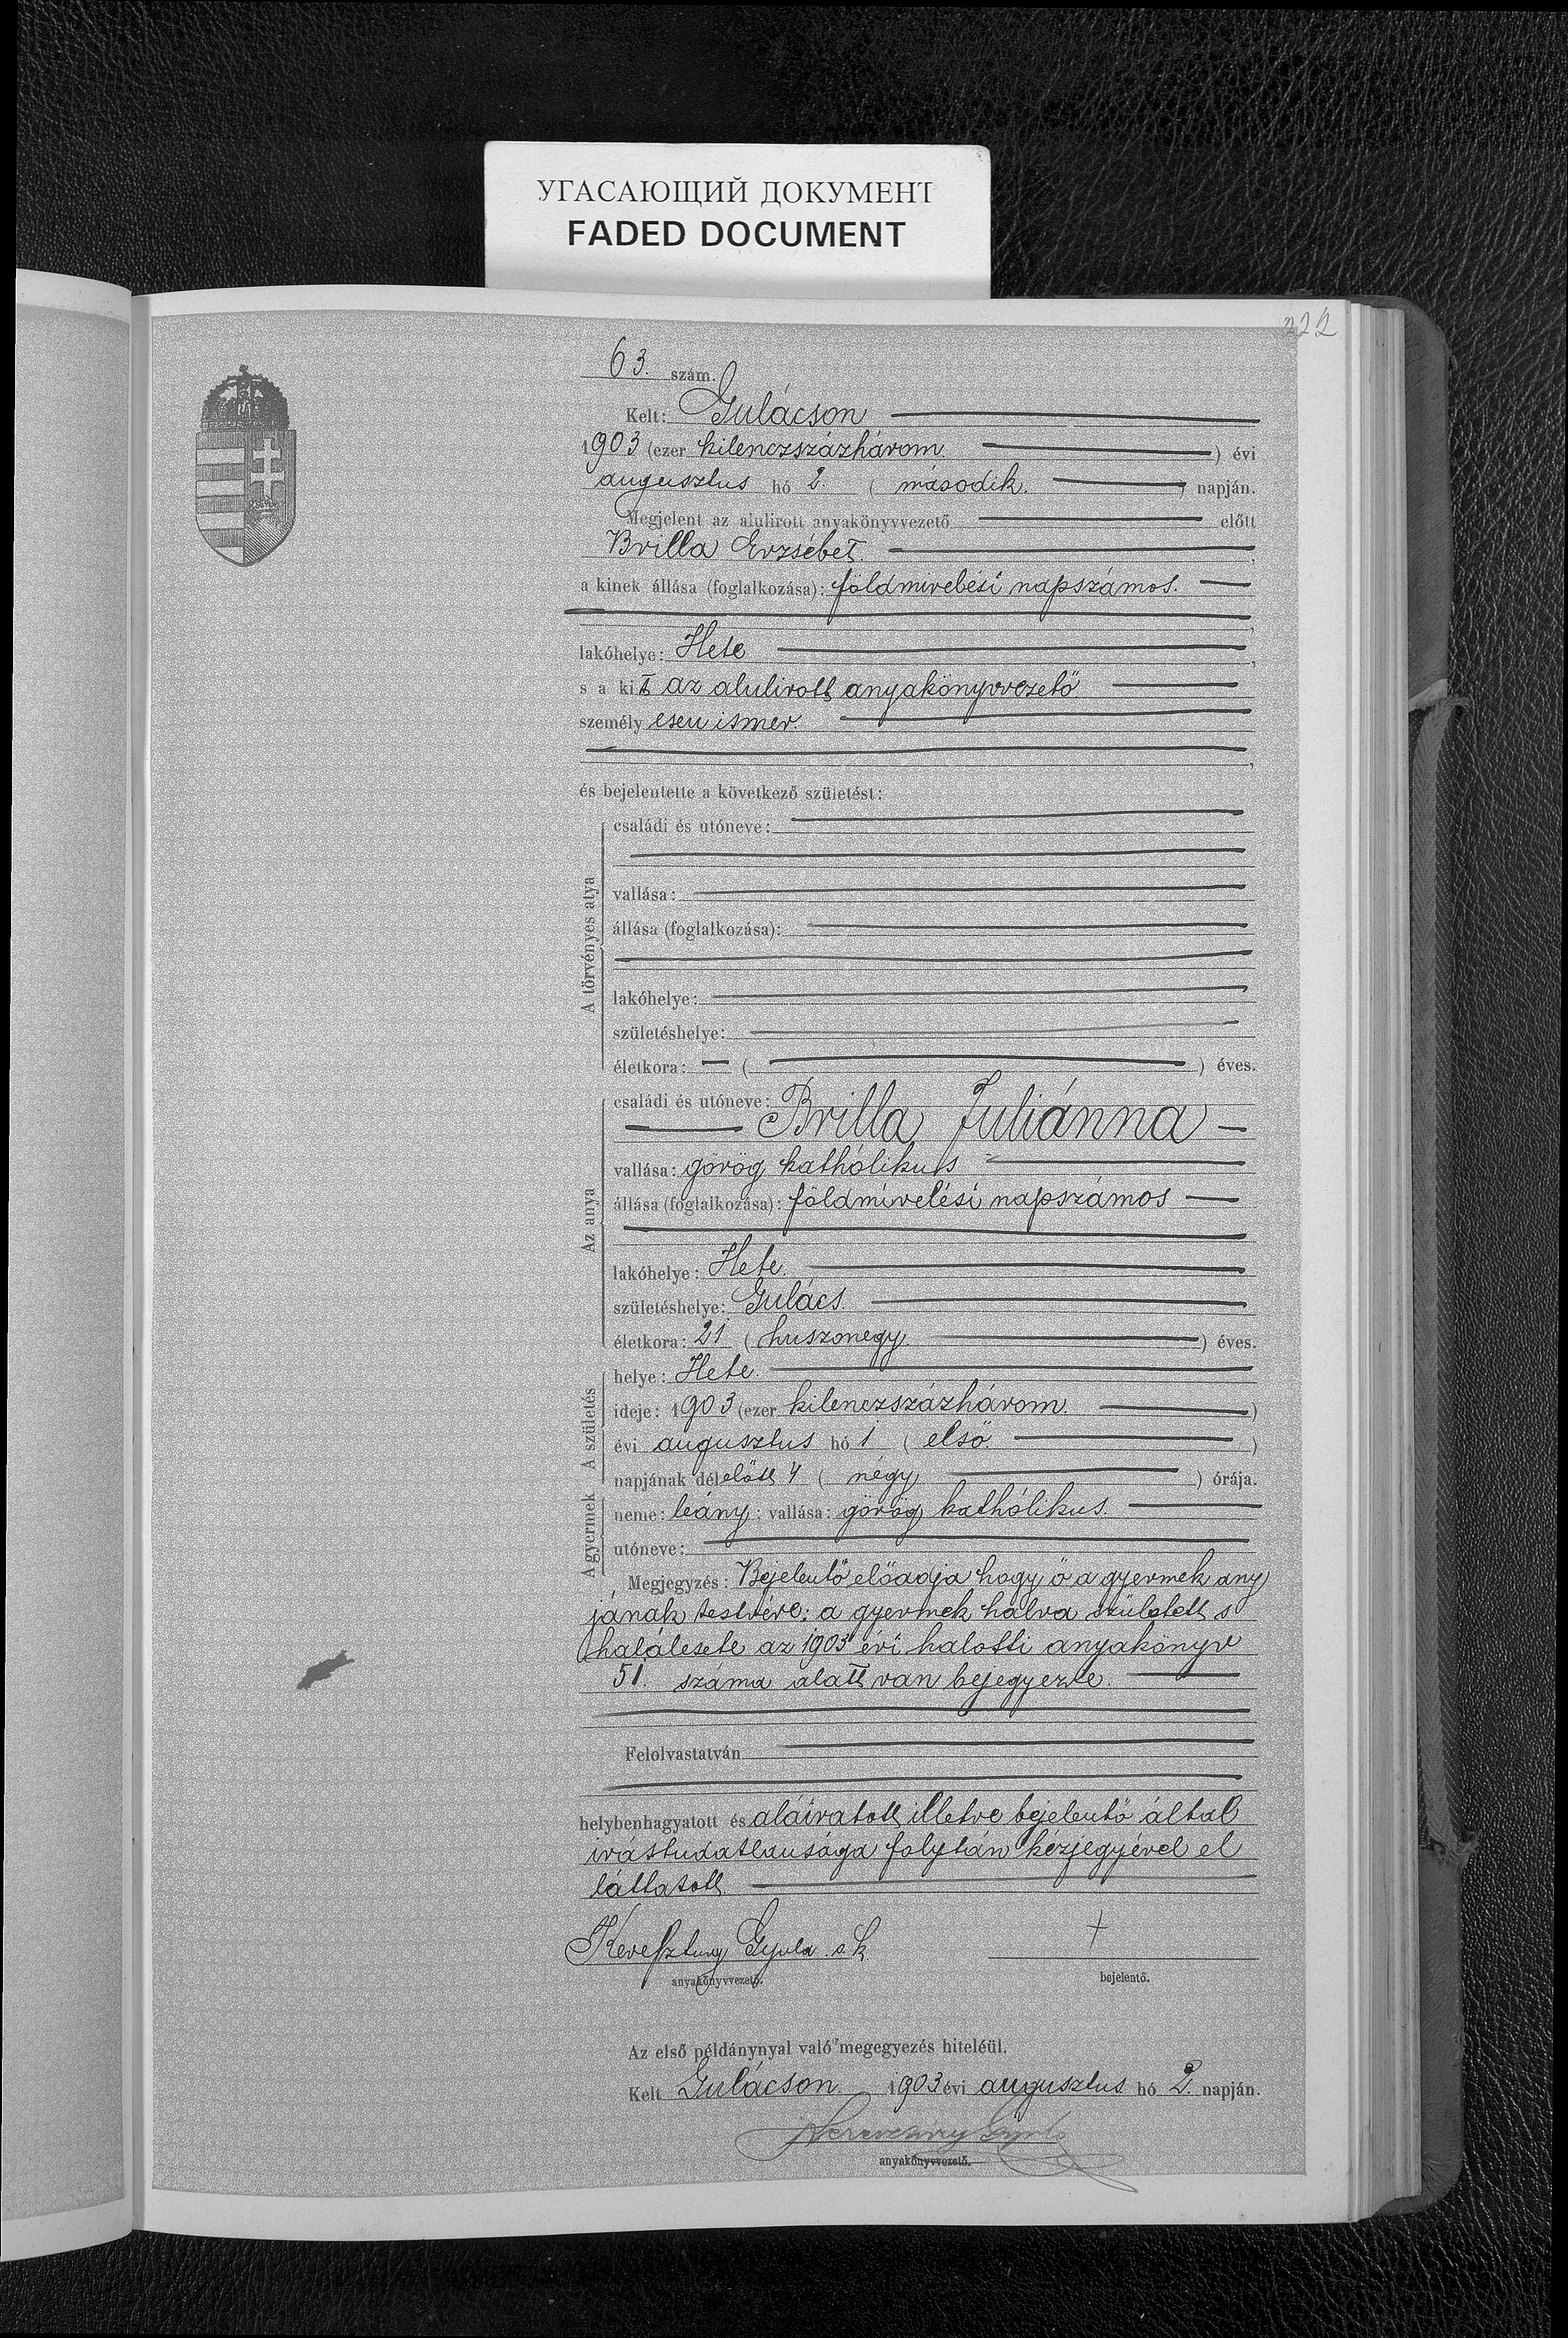 УГАСАЮЩИЙ ДОКУМЕНТ
FADED DOCUMENT
222
63. szám.
Kelt: Gulácson
1903 (ezer kilenczszázhárom.) évi
augusztus hó 2. (második.) napján.
Megjelent az alulirott anyakönyvvezető előtt
Brilla Erzsébet.
a kinek állása (foglalkozása): földmivelési napszámos.
lakóhelye: Hete
s a kit az alulirott anyakönyvvezető
személyesen ismer.
és bejelentette a következő születést:
A törvényes atya
családi és utóneve:
vallása:
állása (foglalkozása):
lakóhelye:
születéshelye:
életkora: — ( ) éves.
Az anya
családi és utóneve:
Brilla Juliánna
vallása: görög kathólikus
állása (foglalkozása): földmívelési napszámos
lakóhelye: Hete.
születéshelye: Gulács.
életkora: 21 (huszonegy) éves.
A születés
helye: Hete.
ideje: 1903 (ezer kilenczszázhárom.)
évi augusztus hó 1 (első.)
napjának délelőtt 4 (négy) órája.
A gyermek
neme: leány; vallása: görög kathólikus.
utóneve:
Megjegyzés: Bejelentő előadja hogy ő a gyermek any
jának testvére; a gyermek halva született s
halálesete az 1903 évi halotti anyakönyv
51. száma alatt van bejegyezve.
Felolvastatván
helybenhagyatott és aláiratott illetve bejelentő által
irástudatlansága folytán kézjegyével el
láttatott.
Keresztury Gyula s.k
+
anyakönyvvezető.
bejelentő.
Az első példánynyal való megegyezés hiteléül.
Kelt Gulácson 1903 évi augusztus hó 2. napján.
Keresztúry Gyula
anyakönyvvezető.